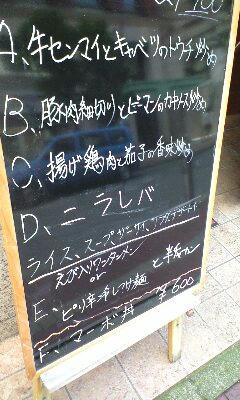 A、牛センマイとキャベツのトウチ炒め
B、豚肉細切りとピーマンのカキソース炒め
C、揚げ鶏肉と茄子の香味炒め
D、ニラレバ
ライス、スープ、ザーサイ、
えび入りワンタンメン
or
と半飯
E、ピリ辛 つけ麺
F、マーボ丼 ¥600